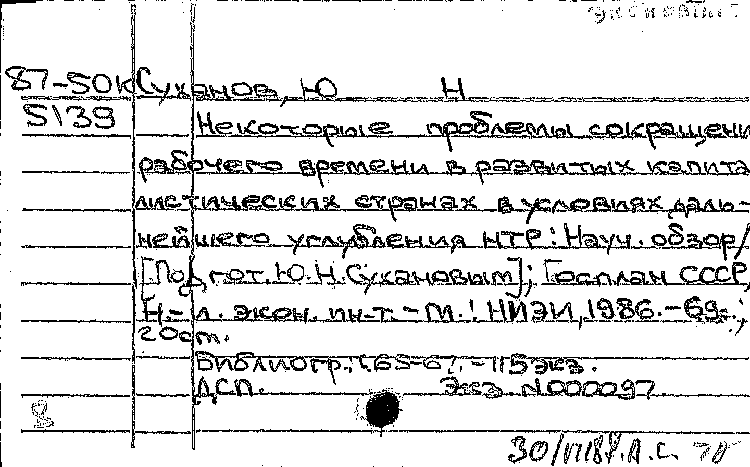 87-50к Суханов, Ю Н
5139 Некоторые проблемы сокращени
рабочего времени в развитых капита
листических странах в условиях даль-
нейшего углубления НТР: Науч. обзор/
[Подгот. Ю.Н. Сухановым]; Госплан СССР,
Н.-и. экон. ин-т. - М.: НИЭИ, 1986. - 69с.;
20 cm.
Библиогр.: с. 65-67. - 115 экз.
ДСП. Экз. N000097
8